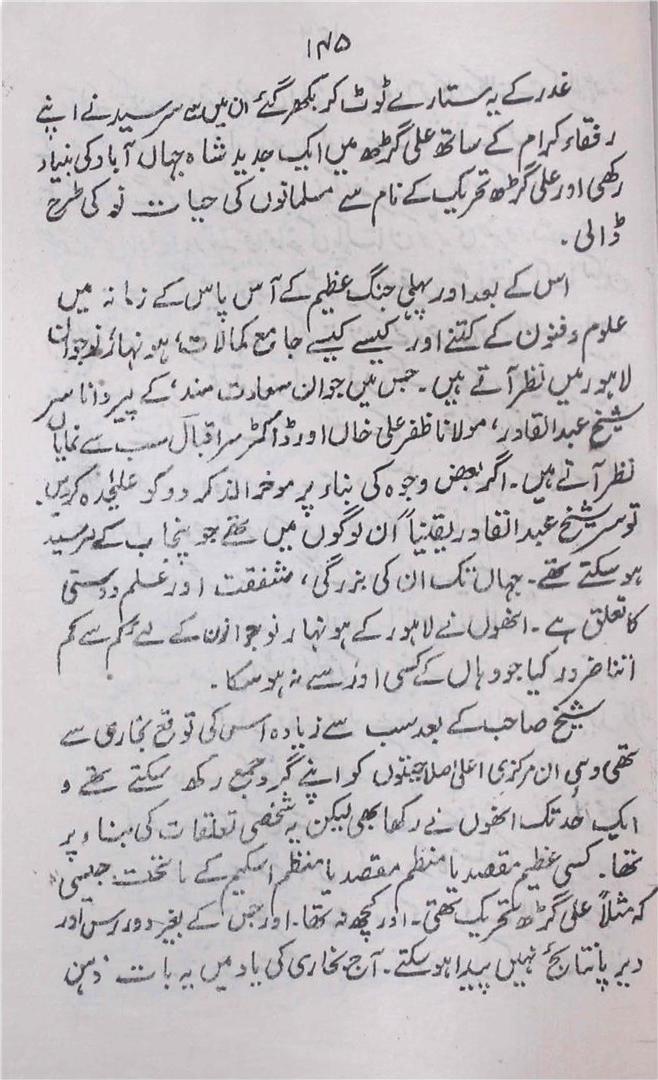 ۱۴۵
غدر کے یہ ستارے ٹوٹ کر بکھر گئے ان میں سے سر سید نے اپنے
رفقاء کرام کے ساتھ علی گڑھ میں ایک جدید شاہ جہاں آباد کی بنیاد
رکھی اور علی گڑھ تحریک کے نام سے مسلمانوں کی حیات نو کی طرح
ڈالی۔
اس کے بعد اور پہلی جنگ عظیم کے آس پاس کے زمانہ میں
علوم و فنون کے کتنے اور کیسے کیسے جامع کمالات، ہونہار نوجوان
لاہور میں نظر آتے ہیں۔ جس میں جوان سعادت مند، کے پیر دانا سر
شیخ عبدالقادر، مولانا ظفر علی خاں اور ڈاکٹر سر اقبال سب سے نمایاں
نظر آتے ہیں۔ اگر بعض وجوہ کی بناء پر موخر الذکر دو کو علیٰحدہ کر دیں
تو سر شیخ عبدالقادر یقیناً ان لوگوں میں تھے جو پنجاب کے سر سید
ہو سکتے تھے۔ جہاں تک ان کی بزرگی، شفقت اور علم دوستی
کا تعلق ہے۔ انھوں نے لاہور کے ہونہار نوجوانوں کے لئے کم سے کم
اتنا ضرور کیا جو وہاں کے کسی اور سے نہ ہو سکا۔
شیخ صاحب کے بعد سب سے زیادہ اس کی توقع بخاری سے
تھی وہی ان مرکزی اعلیٰ صلاحیتوں کو اپنے گرد جمع رکھ سکتے تھے و
ایک حد تک انھوں نے رکھا بھی لیکن یہ شخصی تعلقات کی بناء پر
تھا۔ کسی عظیم مقصد یا منظم مقصد یا منظم اسکیم کے ماتحت جیسی
کہ مثلاً علی گڑھ تحریک تھی۔ اور کچھ نہ تھا۔ اور جس کے بغیر دور رس اور
دیر پا نتائج نہیں پیدا ہو سکتے۔ آج بخاری کی یاد میں یہ بات ذہن